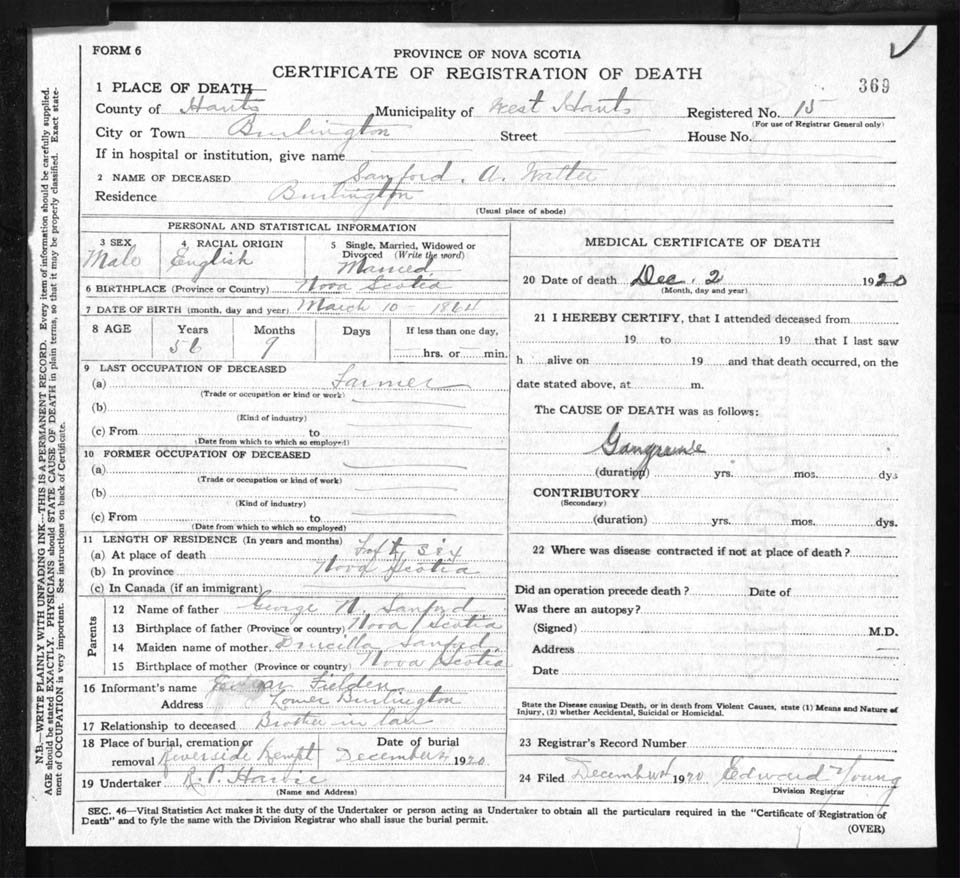 FORM 6
PROVINCE OF NOVA SCOTIA
CERTIFICATE OF REGISTRATION OF DEATH
369
1 PLACE OF DEATH
County of Hants Municipality of West Hants Registered No. 15
(For use of Registrar General only)
City or Town Burlington Street House No.
If in hospital or institution, give name
2 NAME OF DECEASED Sanford. A. Walter
Residence Burlington
(Usual place of abode)
PERSONAL AND STATISTICAL INFORMATION
3 SEX Male
4 RACIAL ORIGIN English
5 Single, Married, Widowed or Divorced (Write the word) Married
6 BIRTHPLACE (Province or Country) Nova Scotia
7 DATE OF BIRTH (month, day and year) March 10 - 1864
8 AGE Years Months Days If less than one day,
56 9 hrs. or min.
9 LAST OCCUPATION OF DECEASED
(a) Farmer
(Trade or occupation or kind or work)
(b)
(Kind of industry)
(c) From to
(Date from which to which so employed)
10 FORMER OCCUPATION OF DECEASED
(a)
(Trade or occupation or kind of work)
(b)
(Kind of industry)
(c) From to
(Date from which to which so employed)
11 LENGTH OF RESIDENCE (In years and months)
(a) At place of death
(b) In province Nova Scotia
(c) In Canada (if an immigrant)
Parents
12 Name of father George N. Sanford
13 Birthplace of father (Province or country) Nova Scotia
14 Maiden name of mother Drucilla Sanford
15 Birthplace of mother (Province or country) Nova Scotia
16 Informant's name Fielden
Address Lower Burlington
17 Relationship to deceased Brother in law
18 Place of burial, cremation or removal Riverside Kempt
Date of burial December 4 1920
19 Undertaker R. P. Harvie
(Name and Address)
MEDICAL CERTIFICATE OF DEATH
20 Date of death Dec. 2 1920
(Month, day and year)
21 I HEREBY CERTIFY, that I attended deceased from
19 to 19 that I last saw
h alive on 19 and that death occurred, on the
date stated above, at m.
The CAUSE OF DEATH was as follows:
Gangreune
(duration) yrs. mos. dys
CONTRIBUTORY
(Secondary)
(duration) yrs. mos. dys.
22 Where was disease contracted if not at place of death?
Did an operation precede death? Date of
Was there an autopsy?
(Signed) M.D.
Address
Date
State the Disease causing Death, or in death from Violent Causes, state (1) Means and Nature of
Injury, (2) whether Accidental, Suicidal or Homicidal.
23 Registrar's Record Number
24 Filed December 1920 Edward Young
Division Registrar
SEC. 46—Vital Statistics Act makes it the duty of the Undertaker or person acting as Undertaker to obtain all the particulars required in the "Certificate of Registration of
Death" and to fyle the same with the Division Registrar who shall issue the burial permit.
(OVER)
N.B.—WRITE PLAINLY WITH UNFADING INK—THIS IS A PERMANENT RECORD. Every item of information should be carefully supplied.
AGE should be stated EXACTLY. PHYSICIANS should STATE CAUSE OF DEATH in plain terms, so that it may be properly classified. Exact state-
ment of OCCUPATION is very important. See instructions on back of Certificate.